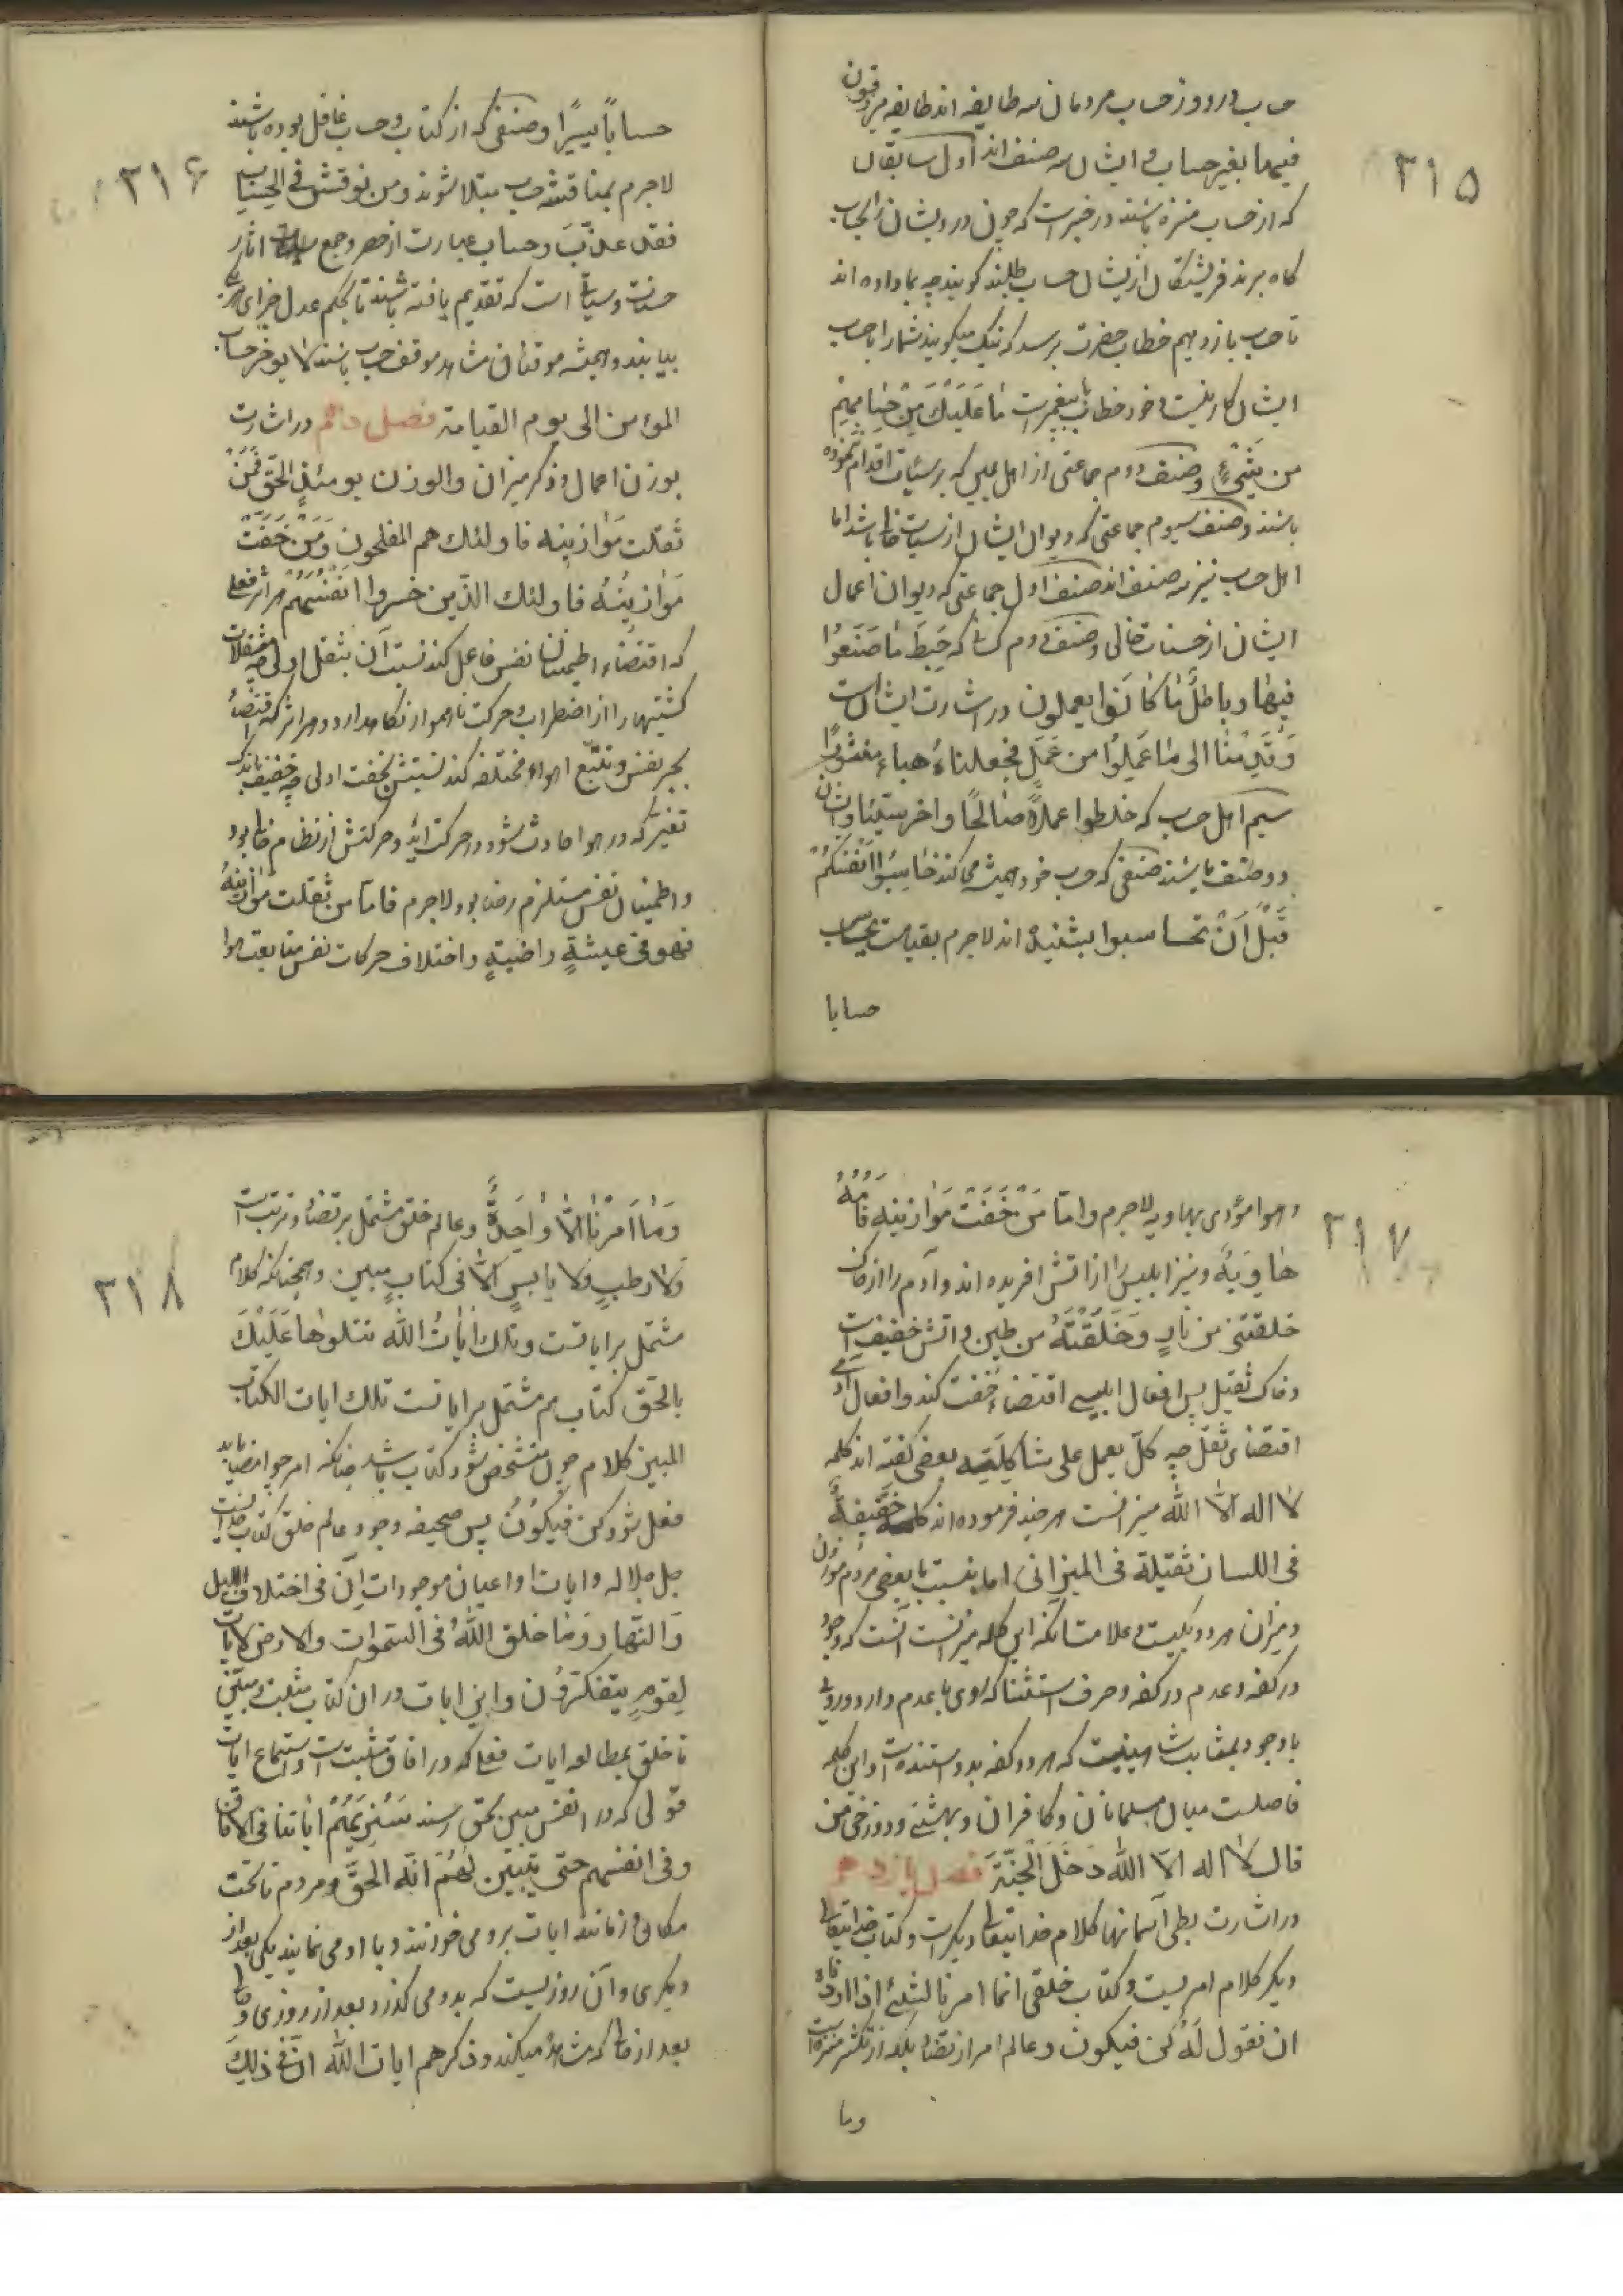 ۳۱۵
حساب در روز حساب مردمان سه طایفه اند طایفه یرزقون
فیها بغیر حساب و ایشان سه صنف اند اول سابقان
که از حساب منزه باشند در خبر است که چون درویشان را بحساب
کاه برند فریشتکان از یشان حساب طلبند کویند چه بما داده اند
تا حساب باز دهیم خطاب حضرت برسد که نیک میکویند شما را با حساب
ایشان کار نیست و خود خطاب با پیغمبر است ما عَلَیْكَ مِنْ حِسابِهِمْ
من شَیْءٍ و صنف دوم جماعتی از اهل یمین که بر سیئات اقدام ننموده
باشند و صنف سیوم جماعتی که دیوان ایشان از سیئات خالی باشد اما
اهل حساب نیز سه صنف اند صنف اول جماعتی که دیوان اعمال
ایشان از حسنات خالی و صنف دوم کسانی که حَبِطَ ما صَنَعُوا
فیها و باطلٌ ما کانوا یعملون در اشارت ایشان است
وَقَدِمْنا الی ما عَمِلُوا من عَمَلٍ فجعلناهُ هباءً منثورًا
سیم اهل حساب که خلطوا عملاً صالحًا و اخر سیّئا و ایشان
دو صنف باشند صنفی که حساب خود همیشه می کنند حاسِبُوا اَنْفُسَکُمْ
قَبْلَ اَنْ تحاسبوا بشنیده اند لاجرم بقیامت یحاسب
حسابا
۳۱۶
حساباً یسیرًا و صنفی که از کتاب و حساب غافل بوده باشند
لاجرم بمناقشه حساب مبتلا شوند و من نوقش فی الحِساب
فقد عذّبَ و حساب عبارت از حصر و جمع اثار
حسنات و سیئات است که تقدیم یافته باشند تا بحکم عدل جزای هر یک
بیابند و همیشه موقنان مشاهد موقف حساب باشند لا یوخر حساب
المؤمن الی یوم القیامة فصل دهم در اشارت
بوزن اعمال و ذکر میزان والوزن یومئذٍ الحَقّ فَمَنْ
ثَقلت مَوازینه فاولئك هم المفلحون وَمَنْ خَفَّتْ
مَوازینُهُ فاولئك الذّین خسروا اَنْفُسَهُمْ هر اثر فعلی
که اقتضاء اطمینان نفس فاعل کند نسبت آن بثقل اولی چه مثقلات
کشتیها را از اضطراب و حرکت ناهموار نکاه دارد و هر اثر که اقتضاءِ
تحیر نفس و تتبّع اهواء مختلفه کند نسبتش بخفت اولی چه خفیف باندک
تغیر که در هوا حادث شود در حرکت اید و حرکتش از نظام خالی بود
و اطمینان نفس مستلزم رضا بود لاجرم فامّا من ثقلت موازینهُ
فهو فی عیشةٍ راضیةٍ و اختلاف حرکات نفس متابعت هوا
۳۱۷
و هوا مؤدی بهاویه لاجرم و امّا مَنْ خَفّتْ مَوازینه فَاُمُّهُ
هاوِیَةٌ و نیز ابلیس را از اتش افریده اند و آدم را از خاک
خلقتنی من نارٍ وَخَلَقْتَهُ من طین و اتش خفیف است
و خاک ثقیل پس افعال ابلیسی اقتضاء خفت کند و افعال آدمی
اقتضای ثقل چه کلّ یعمل علی شاکِلَتِه بعضی کفته اند کلمه
لا اله الّا الله میزانست هر چند فرموده اند کلمة خَفِیفةٌ
فی اللسان ثقیلة فی المیزان اما بنسبت با بعضی مردم موزون
و میزان هر دو یکیست و علامت انکه این کلمه میزانست آنست که وجود
در کفه و عدم در کفه و حرف استثنا که روی با عدم دارد و رویی
با وجود بمثابت شاهینیست که هر دو کفه بدو استنده است و این کلمه
فاصلست میان مسلمانان و کافران و بهشتی و دوزخی من
قال لا اله الّا الله دَخَلَ الْجَنَّةَ فصل یازدهم
در اشارت بطی آسمانها کلام خدا یتعالی دیکر است و کتاب خدا یتعالی
دیکر کلام امریست و کتاب خلقی انما امرنا لشئ اذا اردناه
ان نقول لَهُ کن فیکون و عالم امر از تضاد بلکه از تکثر منزه است
وما
۳۱۸
وَما اَمرُنا الّا واحِدةٌ و عالم خلق مشتمل بر تضاد و ترتب است
وَلا رطبٍ ولا یابسٍ الّا فی کتابٍ مبین و همچنانکه کلام
مشتمل بر ایاتست و تلك ایاتُ الله نتلوها عَلَیْكَ
بالحَقّ کتاب هم مشتمل بر ایاتست تلك ایات الکتاب
المبین کلام چون متشخص شود کتاب باشد چنانکه امر چو امضا یابد
فعل شود کن فَیکُونُ پس صحیفه وجود عالم خلق کتاب خداست
جل جلاله و ایات او اعیان موجودات اِنّ فی اختلاف اللیل
وَالنّهار وَما خلق اللهُ فی السّموات والارض لایات
لِقومٍ یتفکّرُون و این ایات در ان کتاب مثبت و مبیّن
تا خلق بمطالعه ایات فعلی که در افاق مثبت است و استماع ایات
قولی که در انفس مبین بحق رسند سَنُریهُمْ ایاتنا فی الآفاق
وفی انفسهم حتی یتبیّن لهُمْ انّه الحَقّ و مردم تا تحت
مکان و زمانند ایات برو می خوانند و با او می نمایند یکی بعد از
دیکری و آن روزیست که بدو می کذرد بعد از روزی و حالی
بعد از حالی که مشاهده میکند و ذکرهم ایات الله انّ فی ذلِكَ